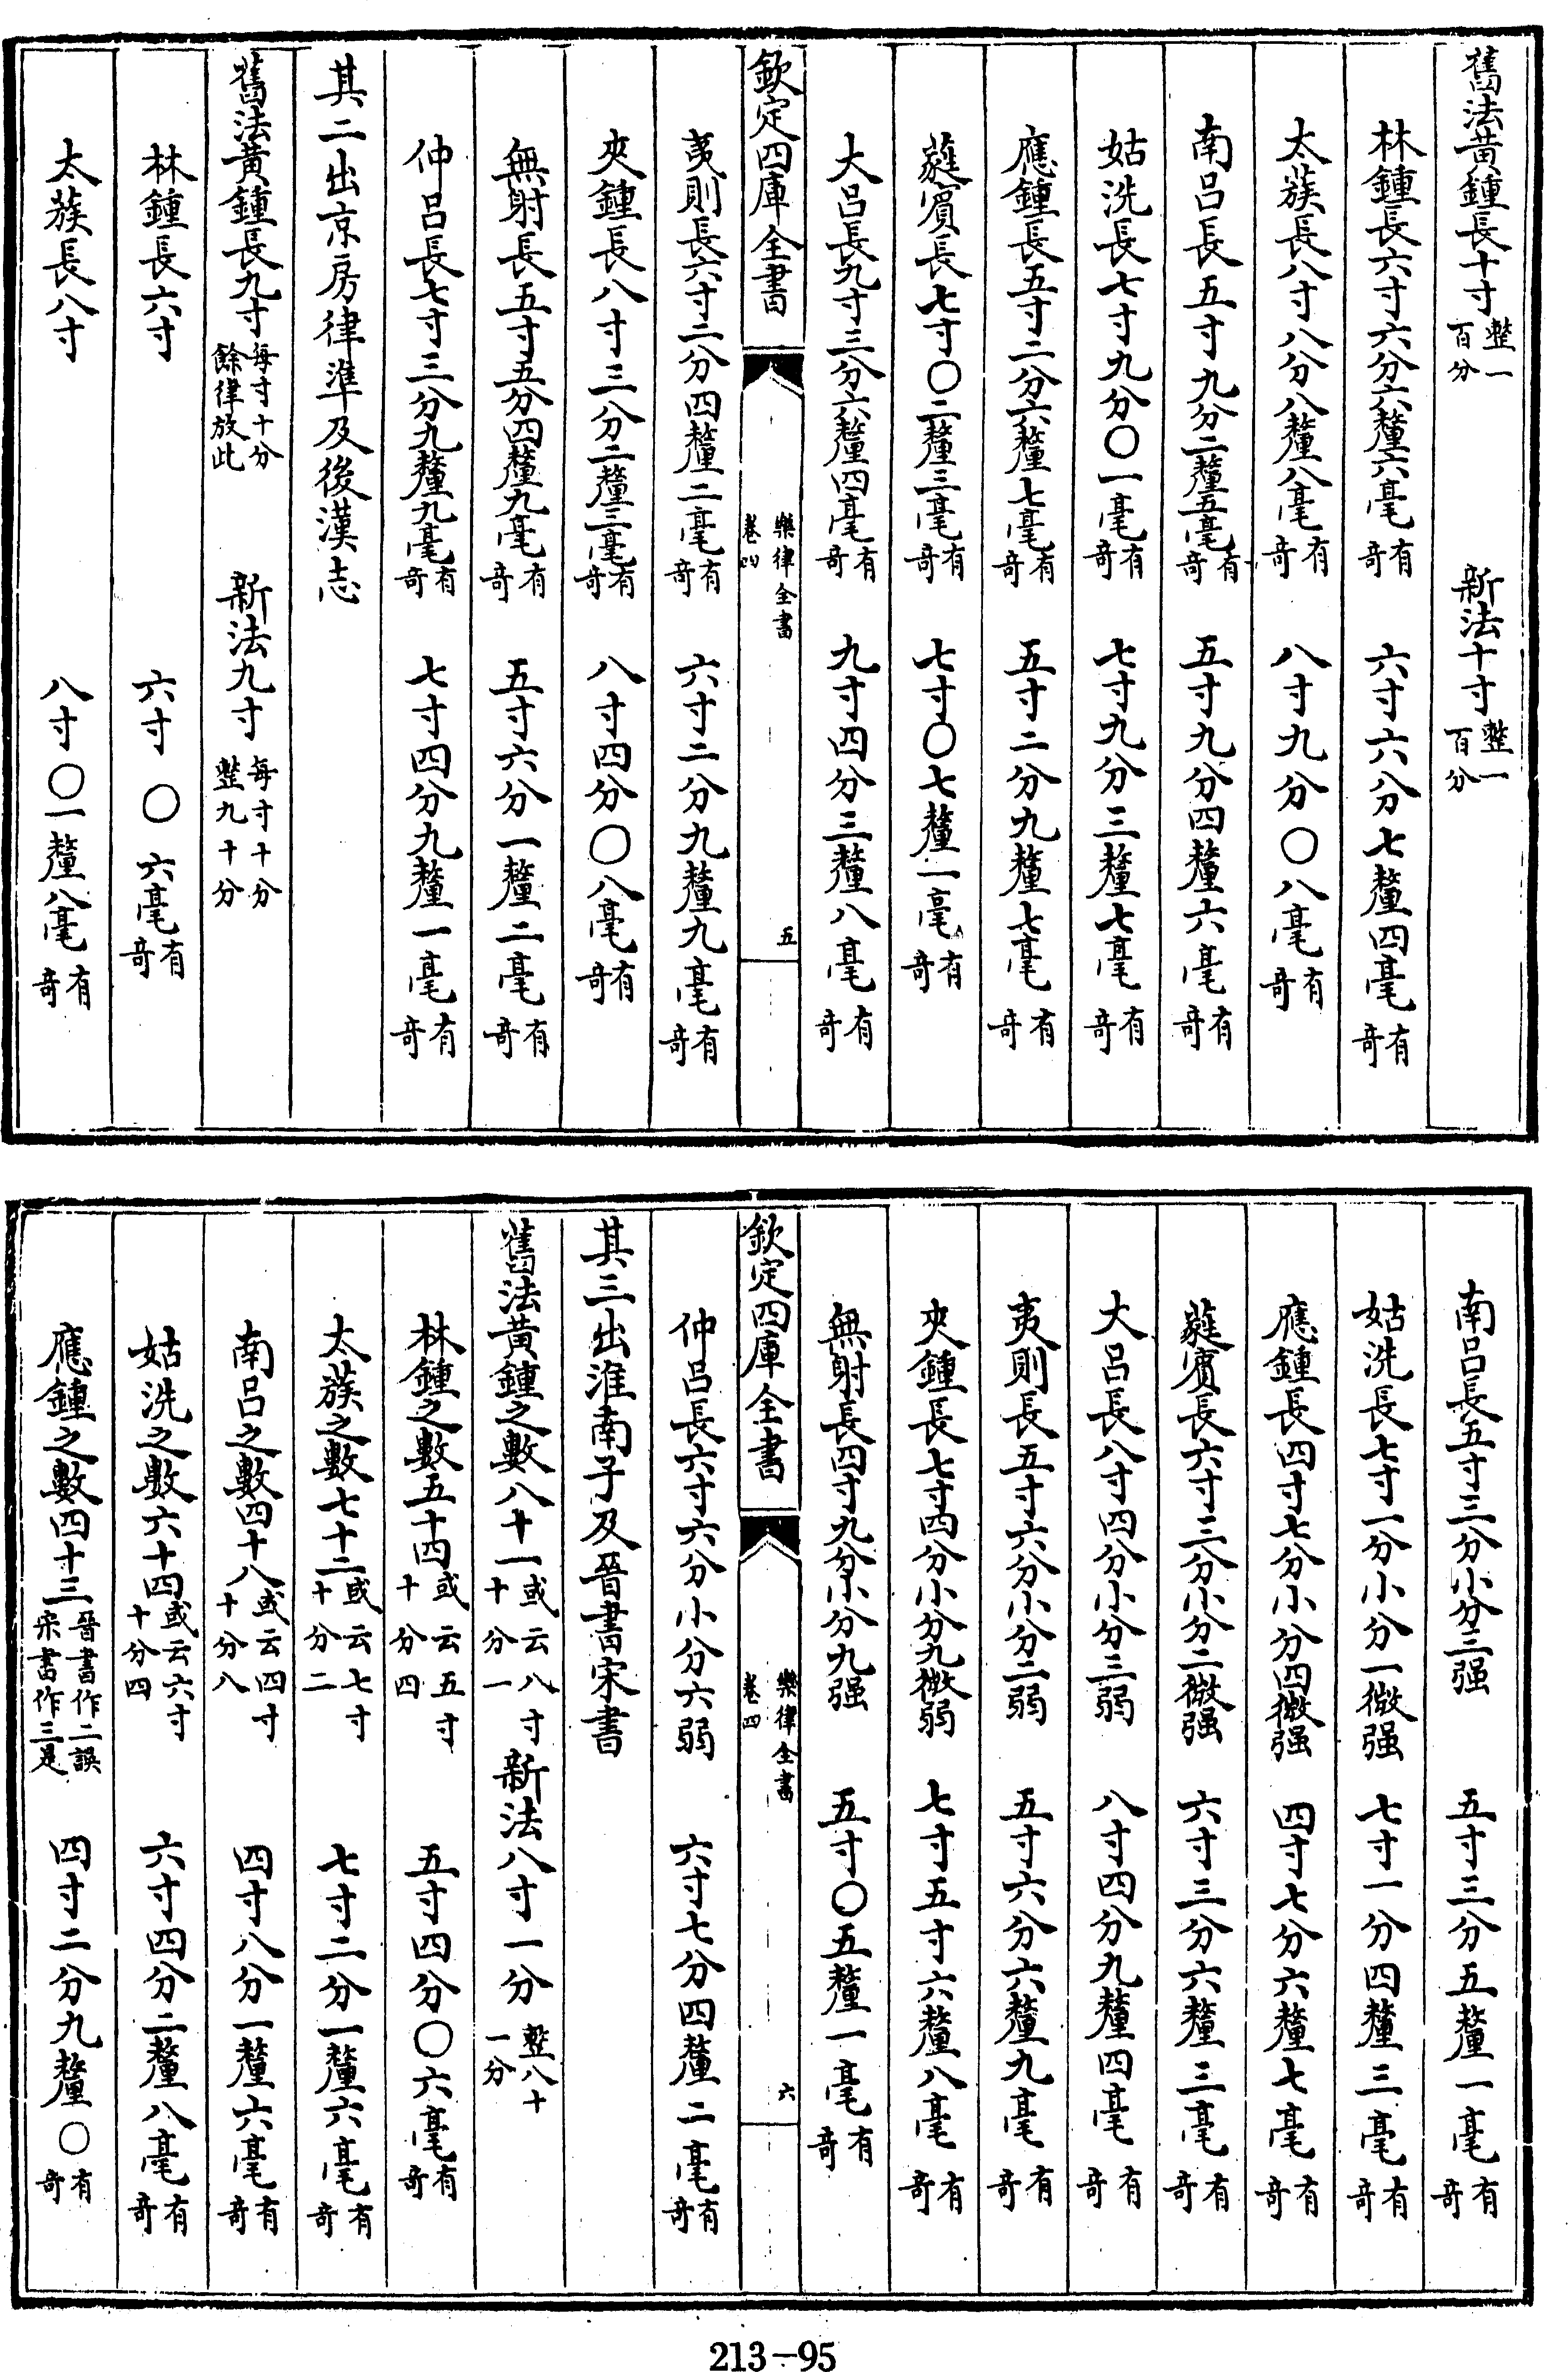 舊法黃鍾長十寸整一百分 新法十寸整一百分
林鍾長六寸六分六釐六毫有奇 六寸六分七釐四毫有奇
太蔟長八寸八分八釐八毫有奇 八寸九分〇八毫有奇
南呂長五寸九分二釐五毫有奇 五寸九分四釐六毫有奇
姑洗長七寸九分〇一毫有奇 七寸九分三釐七毫有奇
應鍾長五寸二分六釐七毫有奇 五寸二分九釐七毫有奇
蕤賓長七寸〇二釐三毫有奇 七寸〇七釐一毫有奇
大呂長九寸三分六釐四毫有奇 九寸四分三釐八毫有奇
欽定四庫全書 樂律全書卷四 五
夷則長六寸二分四釐二毫有奇 六寸二分九釐九毫有奇
夾鍾長八寸三分二釐三毫有奇 八寸四分〇八毫有奇
無射長五寸五分四釐九毫有奇 五寸六分一釐二毫有奇
仲呂長七寸三分九釐九毫有奇 七寸四分九釐一毫有奇
其二出京房律準及後漢志
舊法黃鍾長九寸每寸十分餘律放此 新法九寸每寸十分整九十分
林鍾長六寸 六寸〇六毫有奇
太蔟長八寸 八寸〇一釐八毫有奇
南呂長五寸三分小分三强 五寸三分五釐一毫有奇
姑洗長七寸一分小分一微强 七寸一分四釐三毫有奇
應鍾長四寸七分小分四微强 四寸七分六釐七毫有奇
蕤賓長六寸三分小分二微强 六寸三分六釐三毫有奇
大呂長八寸四分小分三弱 八寸四分九釐四毫有奇
夷則長五寸六分小分二弱 五寸六分六釐九毫有奇
夾鍾長七寸四分小分九微弱 七寸五寸六釐八毫有奇
無射長四寸九分小分九强 五寸〇五釐一毫有奇
欽定四庫全書 樂律全書卷四 六
仲呂長六寸六分小分六弱 六寸七分四釐二毫有奇
其三出淮南子及晉書宋書
舊法黃鍾之數八十一或云八寸十分一 新法八寸一分整八十一分
林鍾之數五十四或云五寸十分四 五寸四分〇六毫有奇
太蔟之數七十二或云七寸十分二 七寸二分一釐六毫有奇
南呂之數四十八或云四寸十分八 四寸八分一釐六毫有奇
姑洗之數六十四或云六寸十分四 六寸四分二釐八毫有奇
應鍾之數四十三晉書作二誤宋書作三是 四寸二分九釐〇有奇
213-95